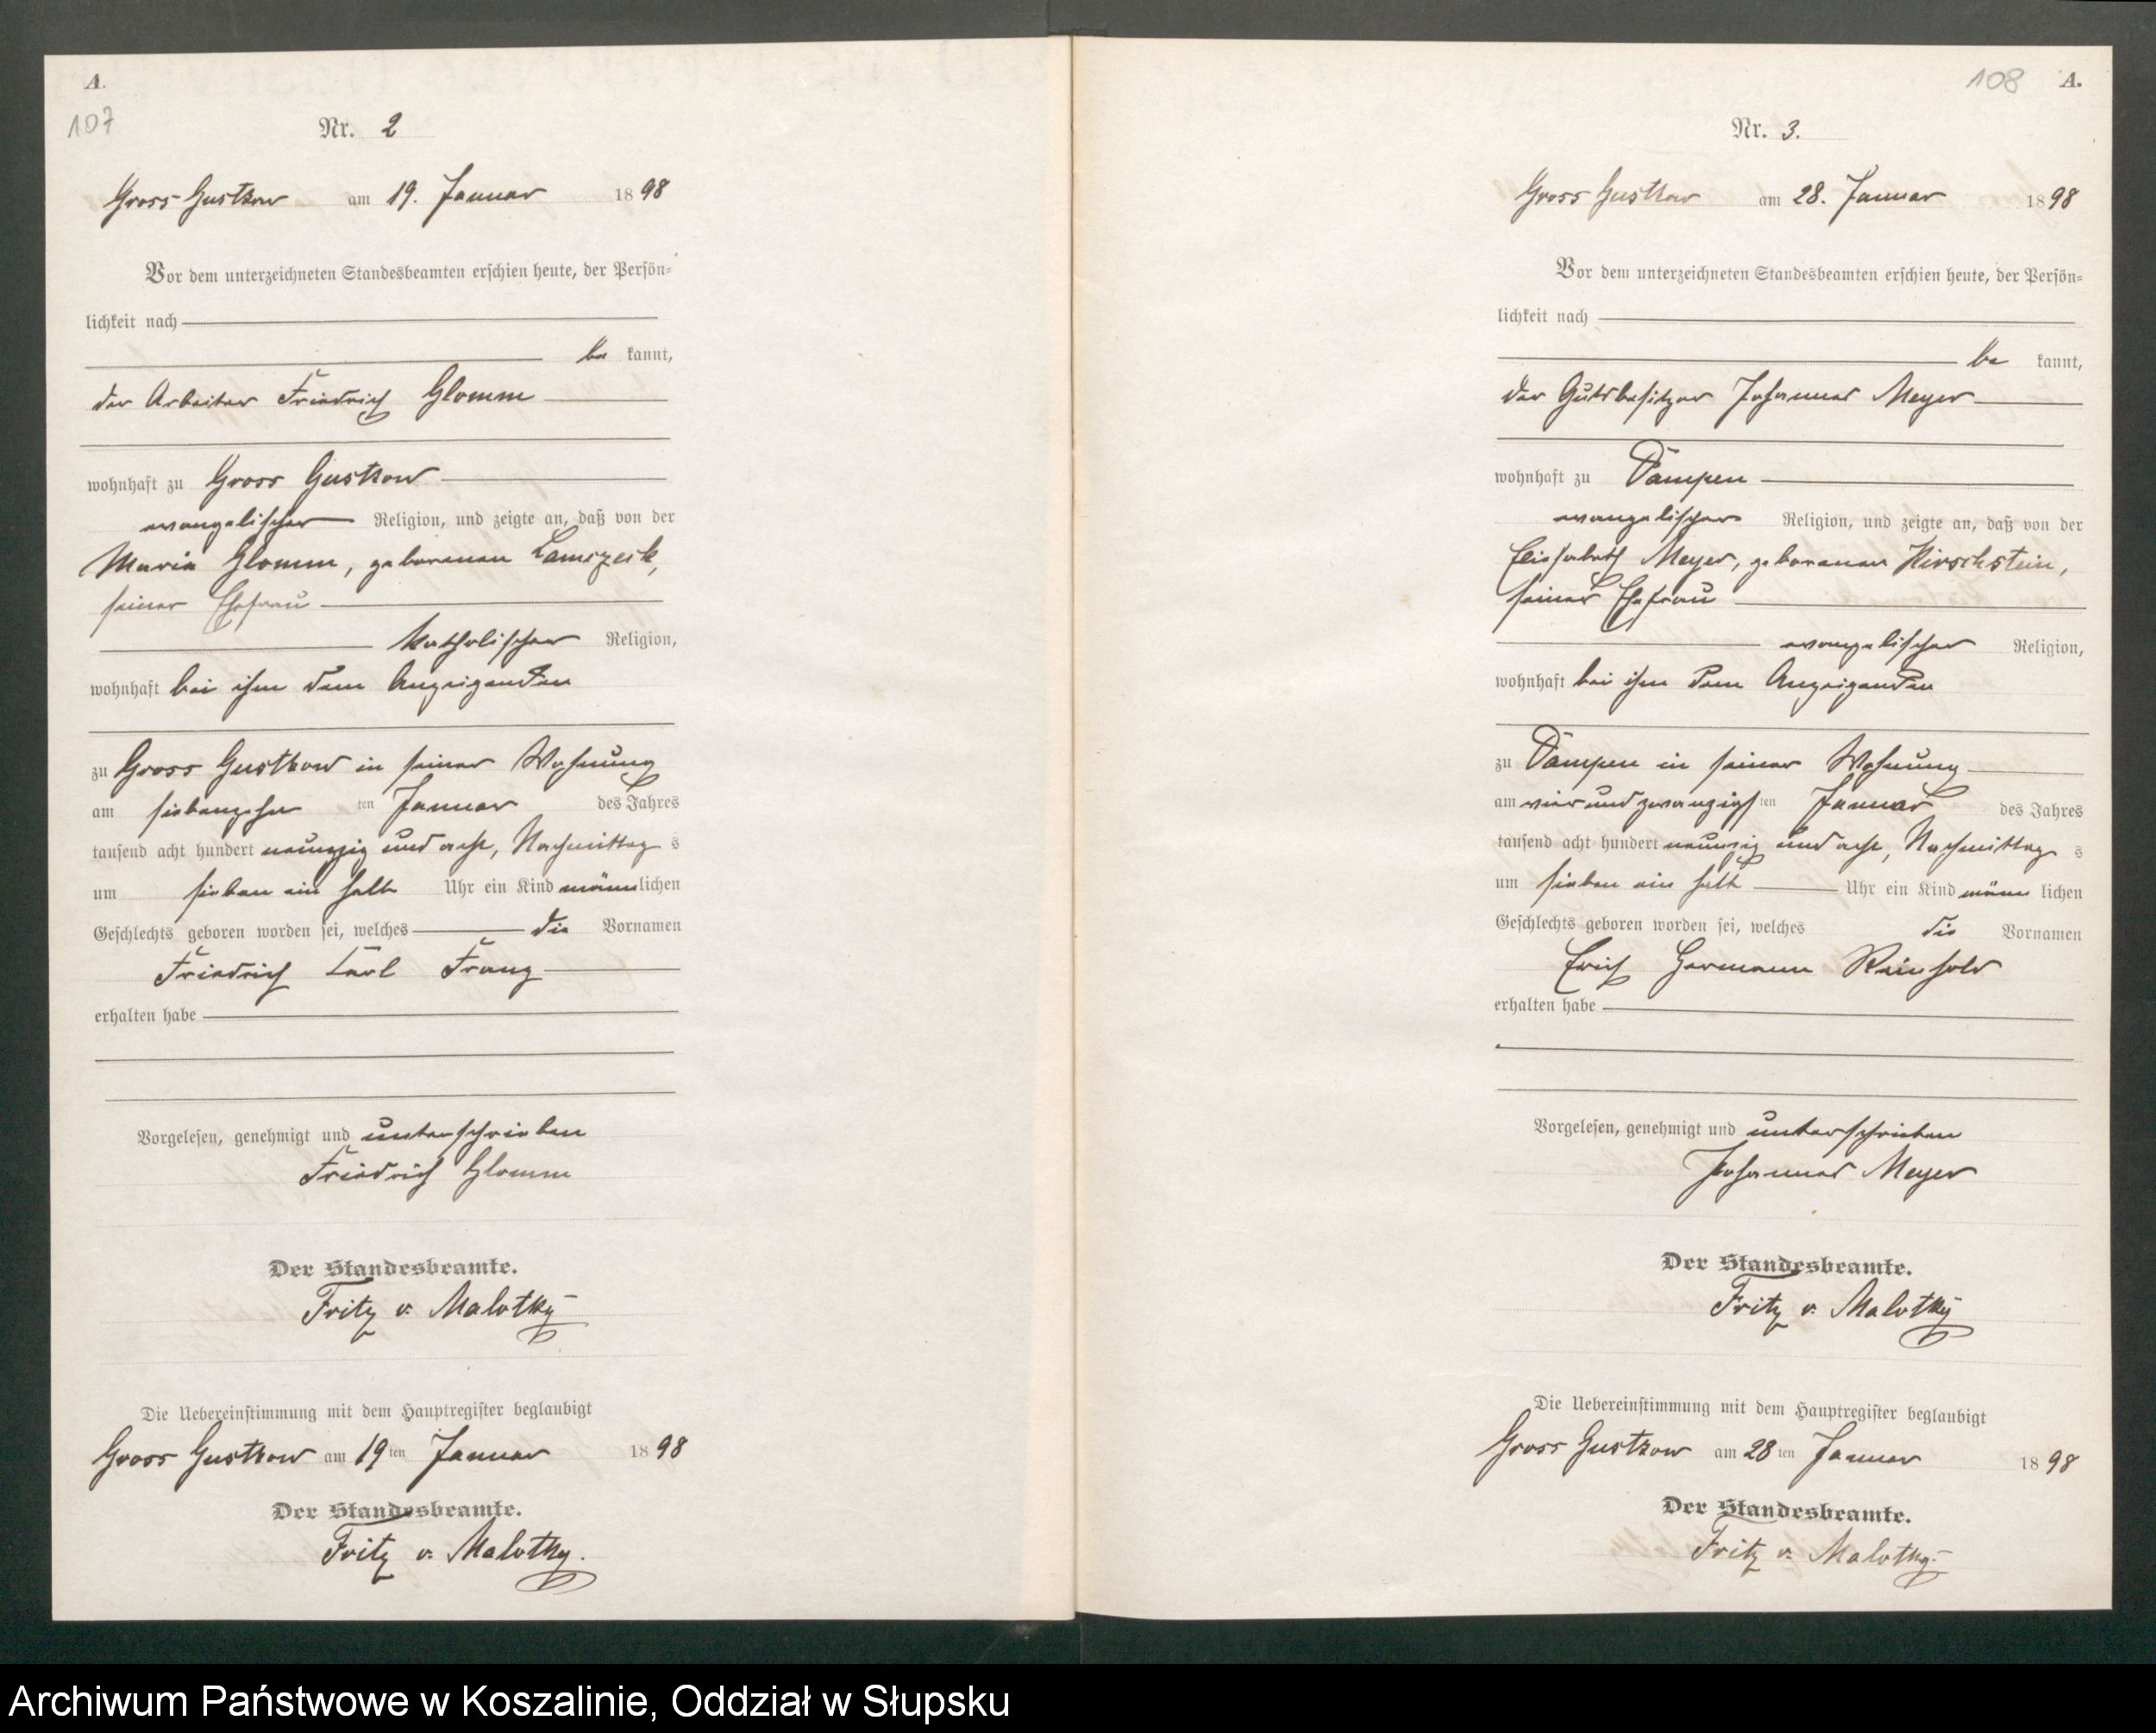 A.
107
Nr. 2
Gross Gustkow am 19. Januar 1898
Vor dem unterzeichneten Standesbeamten erschien heute, der Persön-
lichkeit nach
be kannt,
der Arbeiter Friedrich Glomm
wohnhaft zu Gross Gustkow
evangelischer Religion, und zeigte an, daß von der
Maria Glomm, geborenen
seiner Ehefrau
katholischer Religion,
wohnhaft bei ihm dem Anzeigenden
zu Gross Gustkow in seiner Wohnung
am siebenzehn ten Januar des Jahres
tausend acht hundert neunzig und acht, Nachmittag s
um sieben ein halb Uhr ein Kind männlichen
Geschlechts geboren worden sei, welches die Vornamen
Friedrich Carl Franz
erhalten habe
Vorgelesen, genehmigt und unterschrieben
Friedrich Glomm
Der Standesbeamte.
Fritz v. Malotky
Die Uebereinstimmung mit dem Hauptregister beglaubigt
Gross Gustkow am 19ten Januar 1898
Der Standesbeamte.
Fritz v. Malotky.
108 A.
Nr. 3.
Gross Gustkow am 28. Januar 1898
Vor dem unterzeichneten Standesbeamten erschien heute, der Persön-
lichkeit nach
be kannt,
der Gutsbesitzer Johannes Meyer
wohnhaft zu Dampen
evangelischer Religion, und zeigte an, daß von der
Elisabeth Meyer, geborenen Hirschstein,
seiner Ehefrau
evangelischer Religion,
wohnhaft bei ihm dem Anzeigenden
zu Dampen in seiner Wohnung
am vier und zwanzigsten Januar des Jahres
tausend acht hundert neunzig und acht, Nachmittag s
um sieben ein halb Uhr ein Kind männ lichen
Geschlechts geboren worden sei, welches die Vornamen
Erich Hermann Reinhold
erhalten habe
Vorgelesen, genehmigt und unterschrieben
Johannes Meyer
Der Standesbeamte.
Fritz v. Malotky
Die Uebereinstimmung mit dem Hauptregister beglaubigt
Gross Gustkow am 28ten Januar 1898
Der Standesbeamte.
Fritz v. Malotky.
Archiwum Państwowe w Koszalinie, Oddział w Słupsku